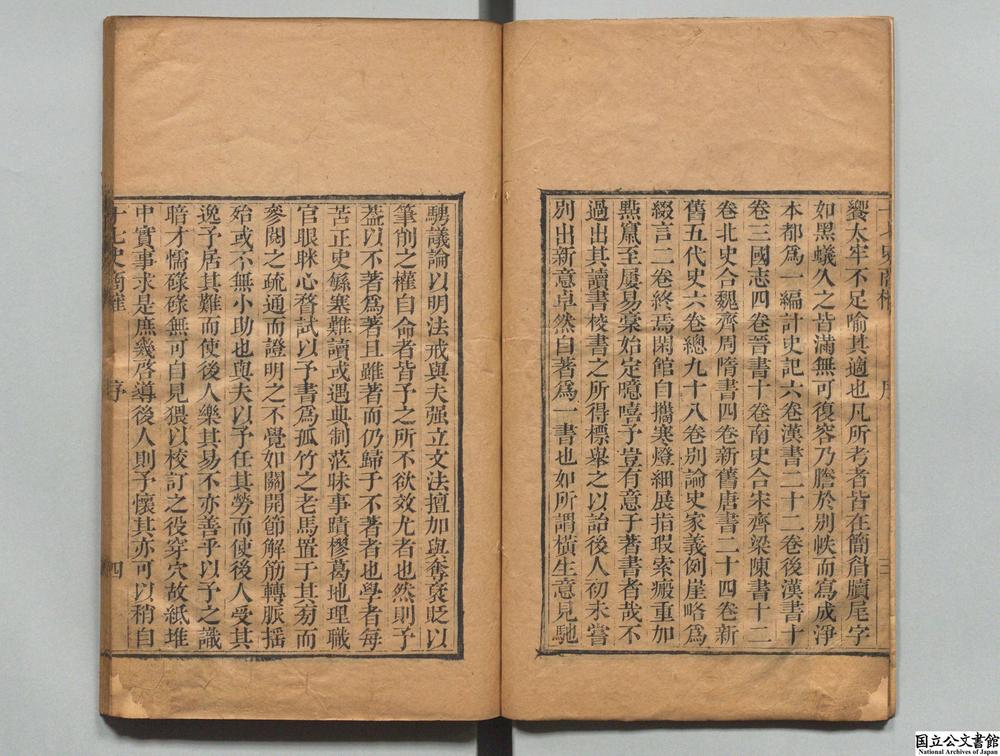 十七史商榷 序 三
饗太牢不足喻其適也凡所考者皆在簡眉牘尾字
如黑蟻久之皆滿無可復容乃謄於別帙而寫成淨
本都爲一編計史記六卷漢書二十二卷後漢書十
卷三國志四卷晉書十卷南史合宋齊梁陳書十二
卷北史合魏齊周隋書四卷新舊唐書二十四卷新
舊五代史六卷總九十八卷別論史家義例崖略爲
綴言二卷終焉閑館自攜寒燈細展指瑕索瘢重加
點竄至屢易稾始定噫嘻予豈有意于著書者哉不
過出其讀書校書之所得標舉之以詒後人初未嘗
別出新意卓然自著爲一書也如所謂橫生意見馳
騁議論以明法戒與夫强立文法擅加與奪襃貶以
筆削之權自命者皆予之所不欲效尤者也然則予
葢以不著爲著且雖著而仍歸于不著者也學者每
苦正史繇塞難讀或遇典制茫昧事蹟樛葛地理職
官眼眯心瞀試以予書爲孤竹之老馬置于其旁而
參閱之疏通而證明之不覺如關開節解筋轉脈搖
殆或不無小助也與夫以予任其勞而使後人受其
逸予居其難而使後人樂其易不亦善乎以予之識
暗才懦碌碌無可自見猥以校訂之役穿穴故紙堆
中實事求是庶幾啓導後人則予懷其亦可以稍自
十七史商榷 序 四
国立公文書館
National Archives of Japan